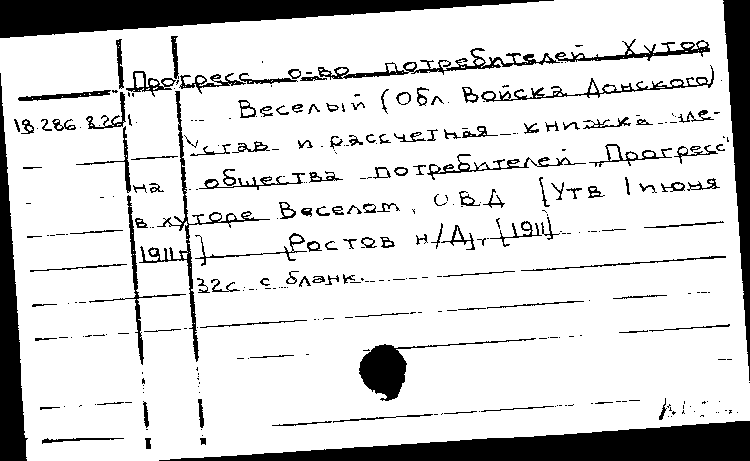 „Прогресс", о-во потребителей. Хутор
18.286.8.261
Веселый (Обл. Войска Донского)
Устав и рассчетная книжка чле-
на общества потребителей „Прогресс"
в хуторе Веселом, О.В.Д [Утв 1 июня
1911г]. [Ростов н/Д], [1911].
32с с бланк.